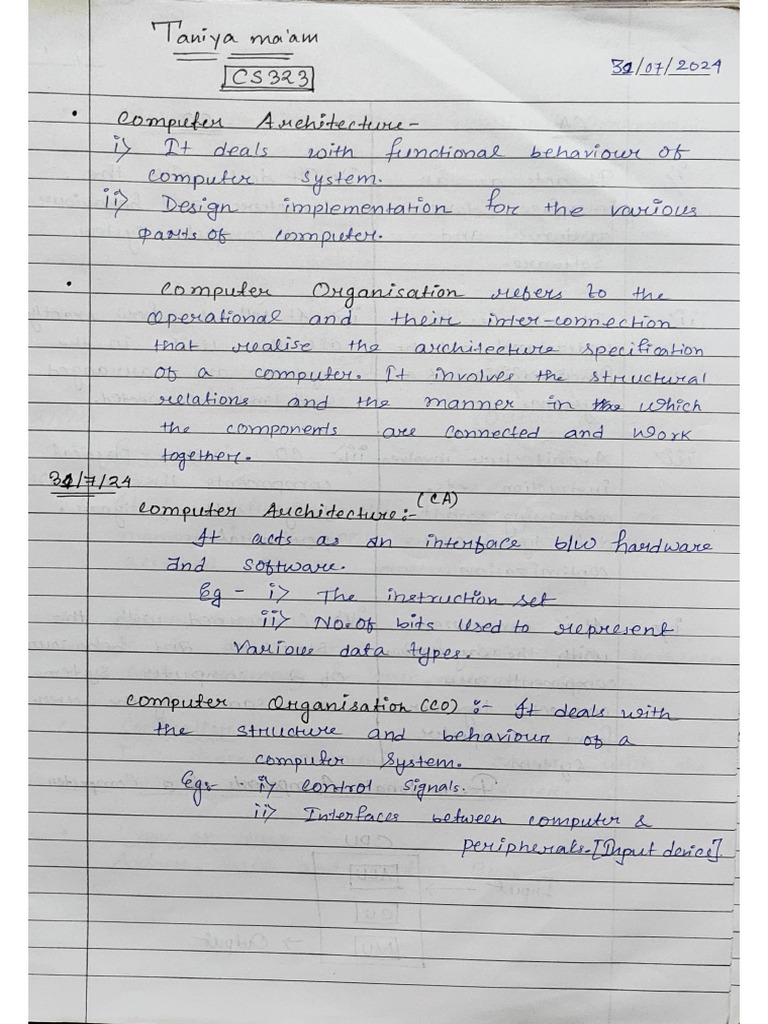 Taniya ma'am
CS323
31/07/2024
• Computer Architecture-
i> It deals with functional behaviour of
computer system.
ii> Design implementation for the various
parts of computer.
• Computer Organisation refers to the
operational and their inter-connection
that realise the architecture specification
of a computer. It involves the structural
relations and the manner in the which
the components are connected and work
together.
31/7/24
Computer Architecture:- (CA)
It acts as an interface b/w hardware
and software.
Eg - i> The instruction set
ii> No. of bits used to represent
various data types.
Computer Organisation (CO) :- It deals with
the structure and behaviour of a
computer system.
Eg- i> control signals.
ii> Interfaces between computer &
peripherals.[Input device].